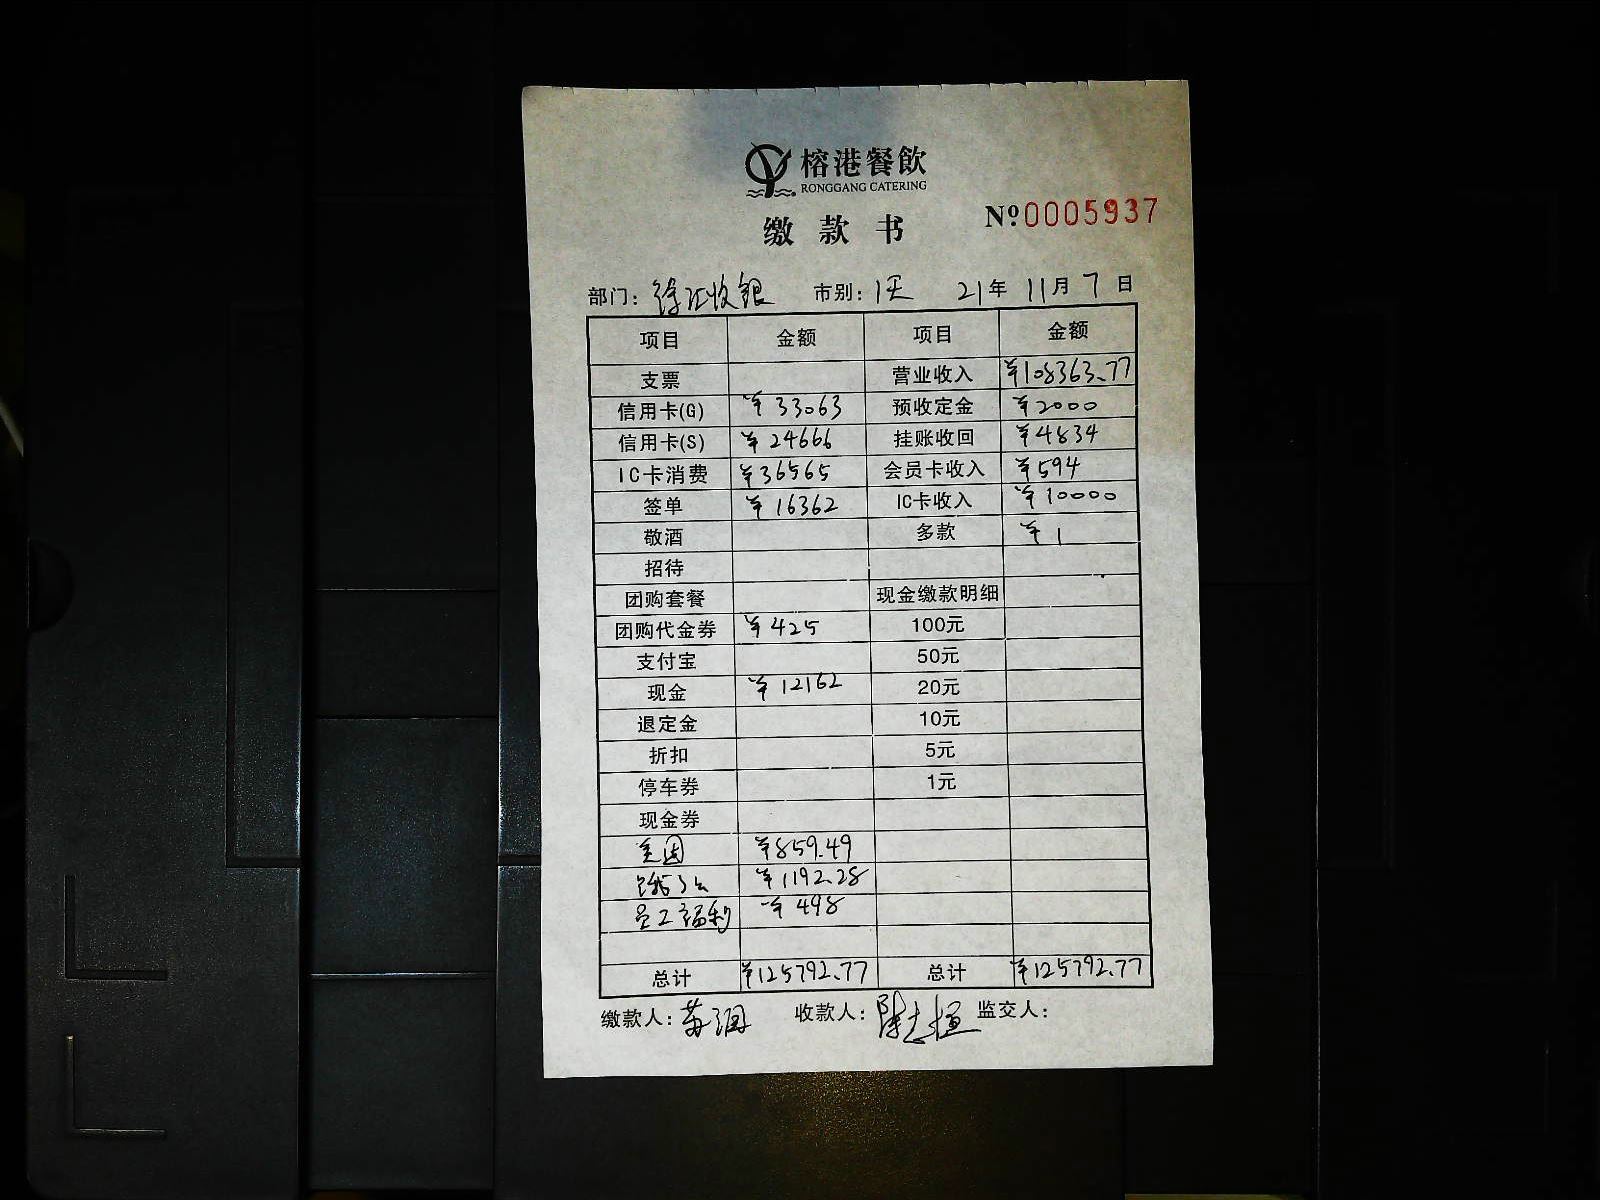 榕港餐飲
RONGGANG CATERING
缴款书
Nº0005937
部门: 徐汇收银 市别: 1天 21年 11月 7日
项目 金额 项目 金额
支票 营业收入 ¥108363.77
信用卡(G) ¥33063 预收定金 ¥2000
信用卡(S) ¥24666 挂账收回 ¥4834
IC卡消费 ¥36565 会员卡收入 ¥594
签单 ¥16362 IC卡收入 ¥10000
敬酒 多款 ¥1
招待
团购套餐 现金缴款明细
团购代金券 ¥425 100元
支付宝 50元
现金 ¥12162 20元
退定金 10元
折扣 5元
停车券 1元
现金券
美团 ¥859.49
饿了么 ¥1192.28
员工福利 ¥498
总计 ¥125792.77 总计 ¥125792.77
缴款人: 收款人: 监交人: